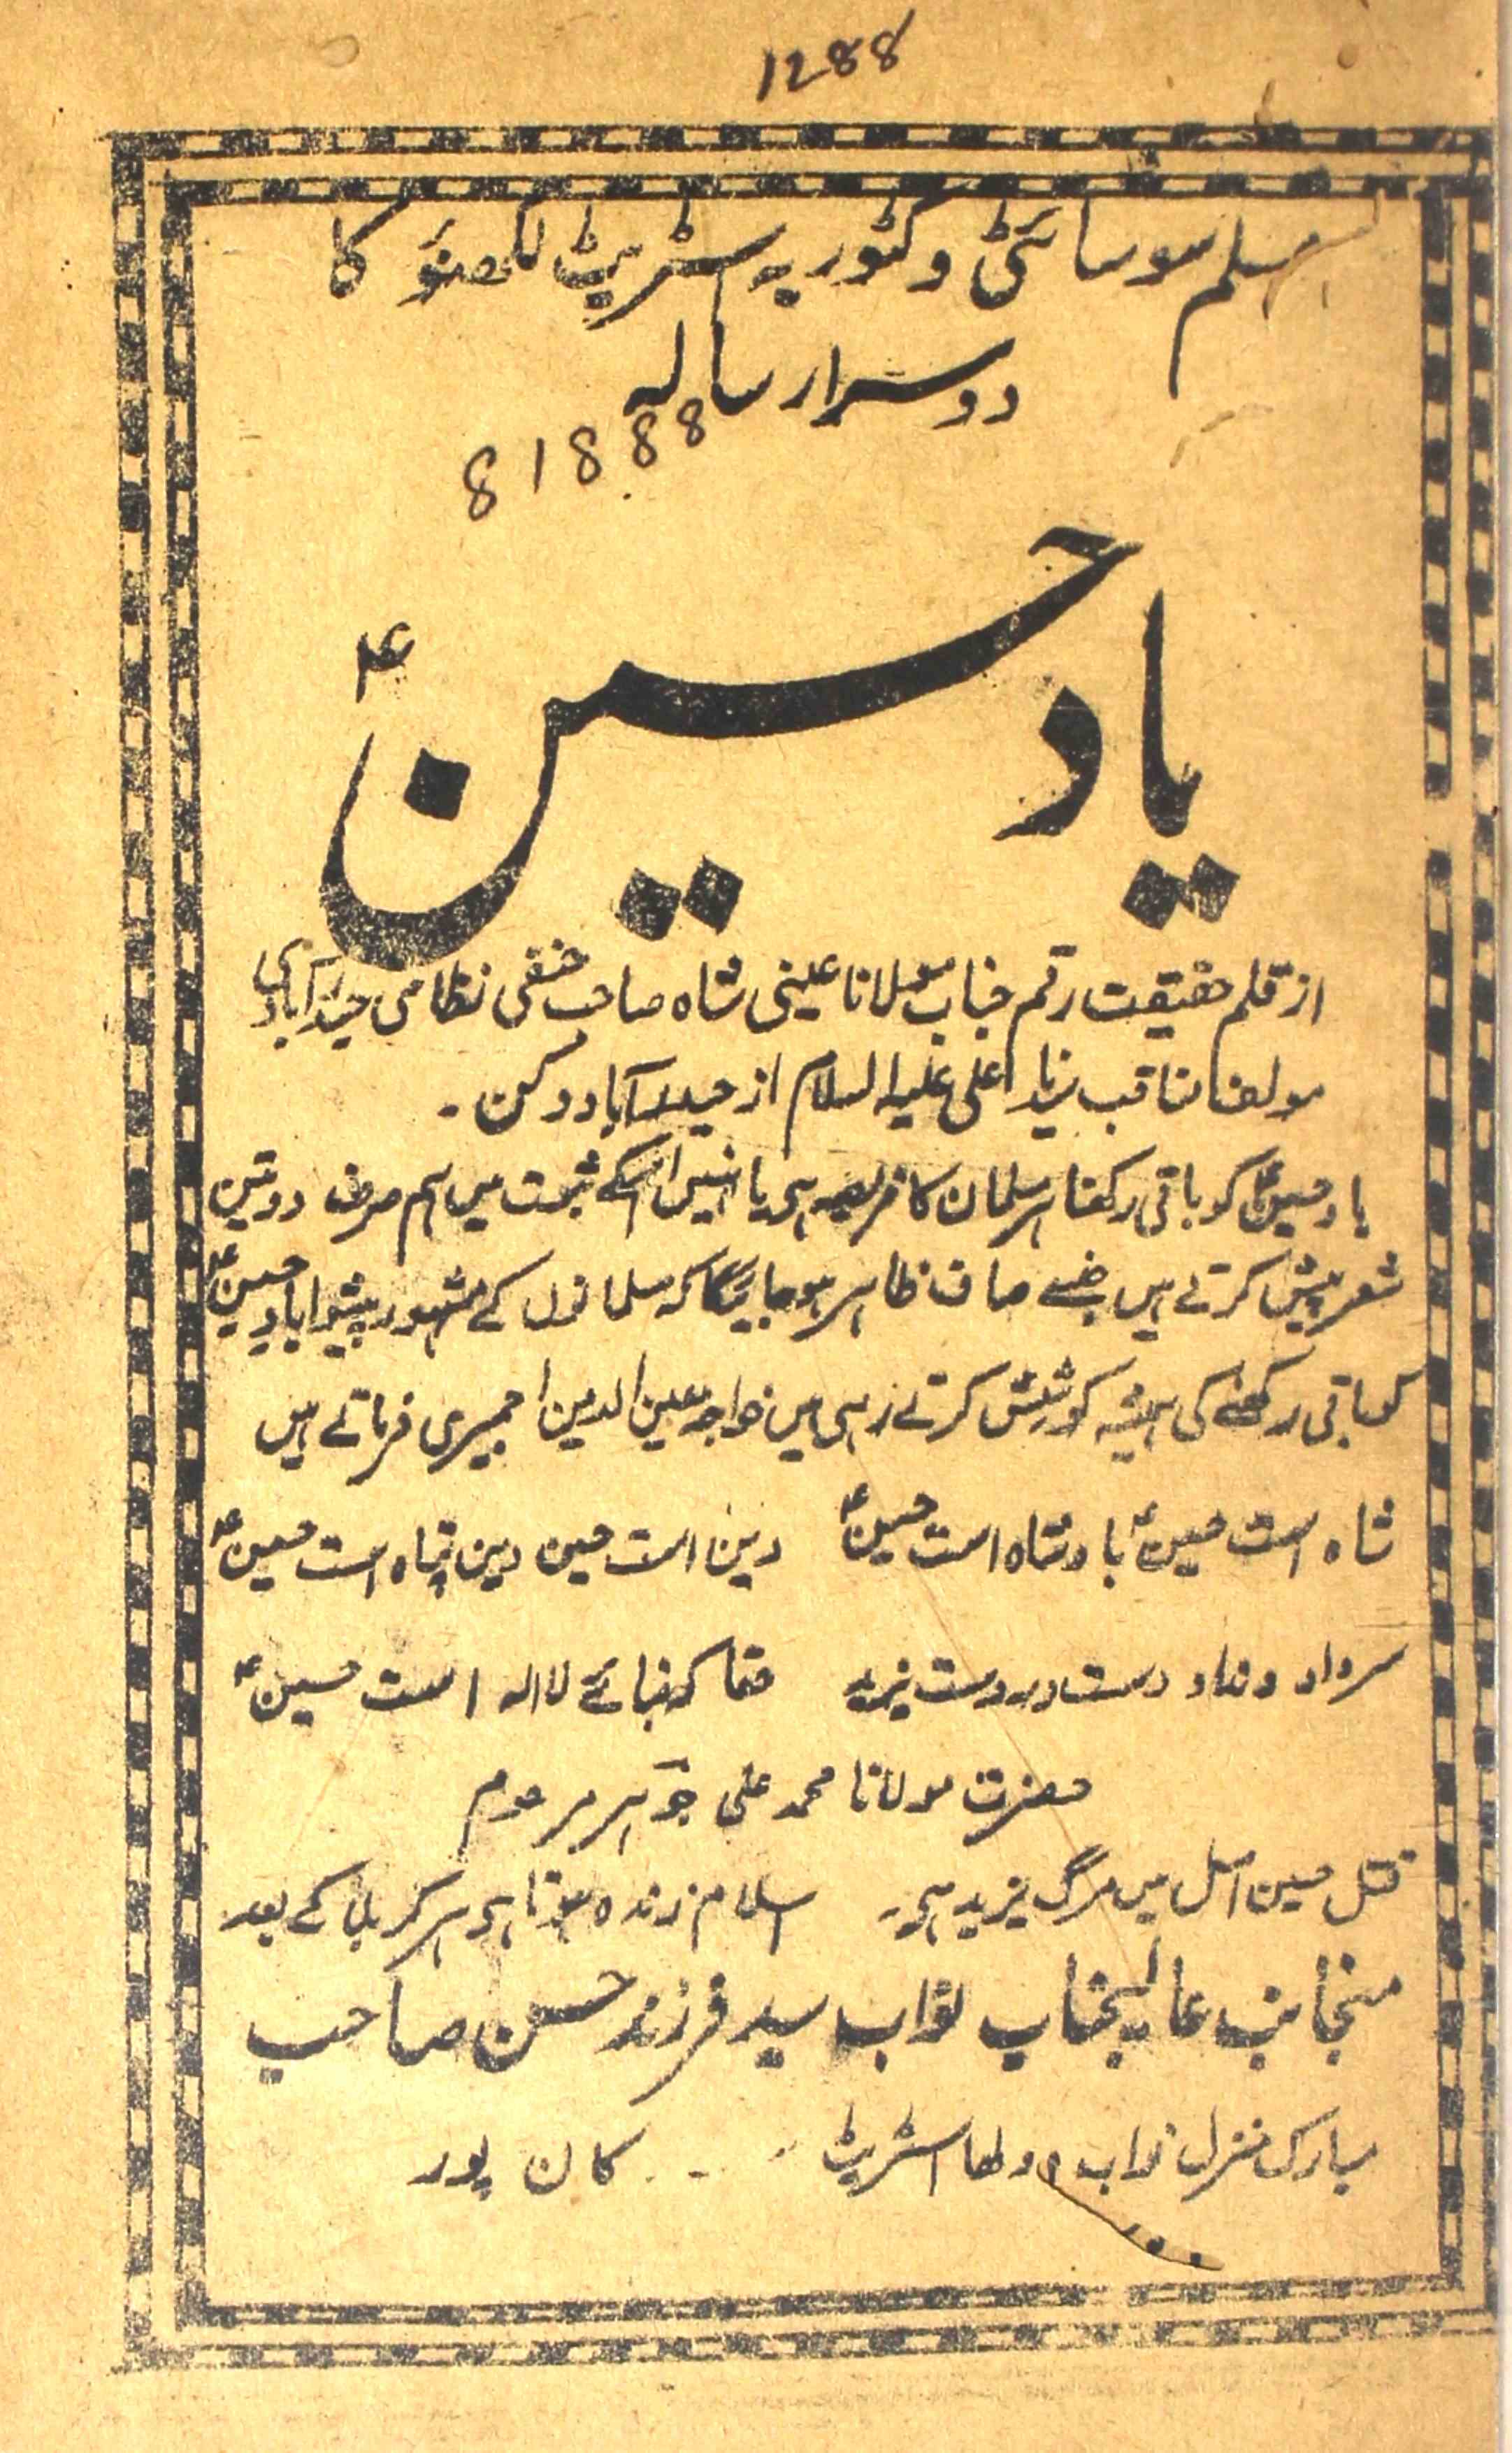 1288
مسلم سوسائٹی وکٹوریہ سٹریٹ لکھنؤ کا
دوسرا رسالہ
81888
یاد حسینؑ
از قلم حقیقت رقم جناب مولانا عینی شاہ صاحب حنفی نظامی حیدرآبادی
مولف مناقب زید علی علیہ السلام از حیدرآباد دکن ۔
یاد حسینؑ کو باقی رکھنا ہر مسلمان کا فریضہ ہی یا نہیں اسکے ثبوت میں ہم صرف دو تین
شعر پیش کرتے ہیں جنسے صاف ظاہر ہو جائیگا کہ مسلمانوں کے مشہور پیشوا یاد حسینؑ
کو باقی رکھنے کی ہمیشہ کوشش کرتے رہی ہیں خواجہ معین الدین اجمیری فرماتے ہیں
شاہ است حسینؑ بادشاہ است حسینؑ دین است حسین دین پناہ است حسینؑ
سر داد و نداد دست در دست یزید حقا کہ بنائے لا الہ است حسینؑ
حضرت مولانا محمد علی جوہر مرحوم
قتل حسین اصل میں مرگ یزید ہی اسلام زندہ ہوتا ہی ہر کربلا کے بعد
منجانب عالیجناب نواب سید فرزند حسن صاحب
مبارک منزل نواب دولھا اسٹریٹ ۔ ۔ ۔ کان پور